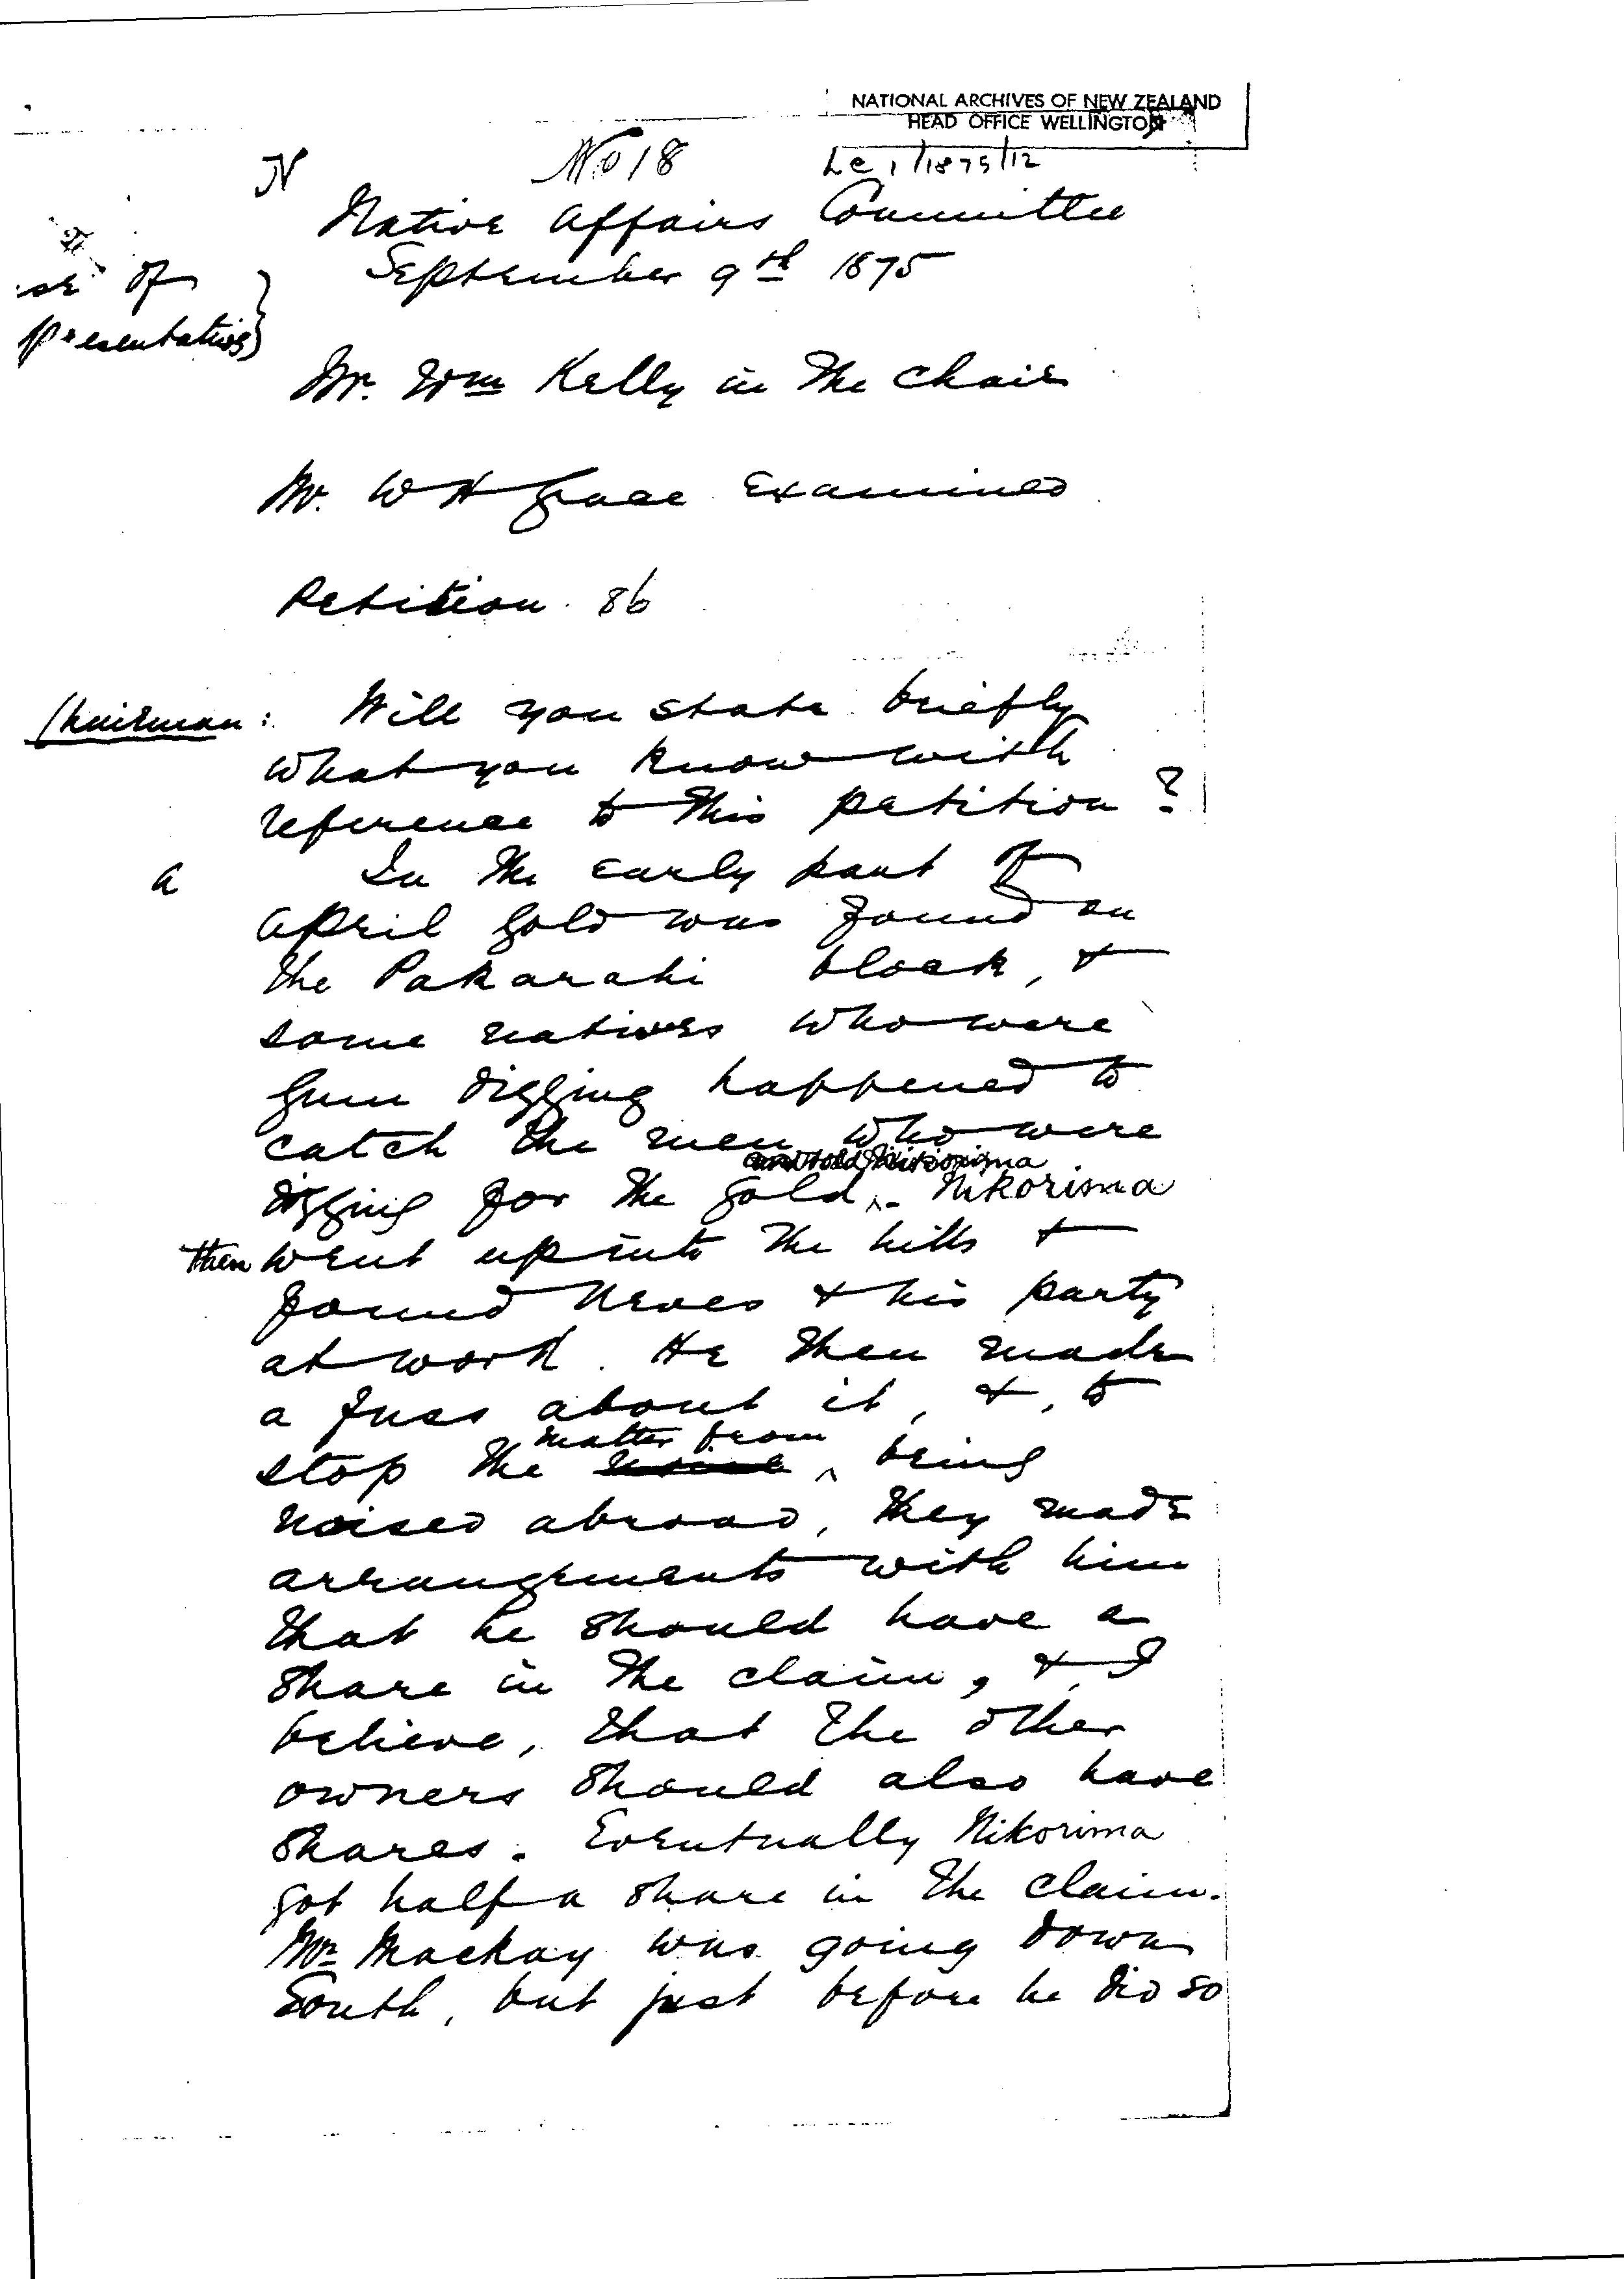 NATIONAL ARCHIVES OF NEW ZEALAND
HEAD OFFICE WELLINGTON
N
No 18
Le 1/1875/12
Native Affairs Committee
September 9th 1875
se of
presentatives
Mr. Wm Kelly in the Chair
Mr. W H Grace Examined
Petition 86
Chairman: Will you state briefly
what you know with
reference to this petition?
A In the early part of
April gold was found on
the Pakarahi block, &
some natives who were
gum digging happened to
catch the men who were
and told Nikorima
digging for the gold. Nikorima
then went up into the hills &
found & his party
at work. He then made
a fuss about it, &, to
matter from
stop the being
noised abroad, they made
arrangements with him
that he should have a
share in the claim, & I
believe, that the other
owners should also have
shares. Eventually Nikorima
got half a share in the claim.
Mr Mackay was going down
South, but just before he did so